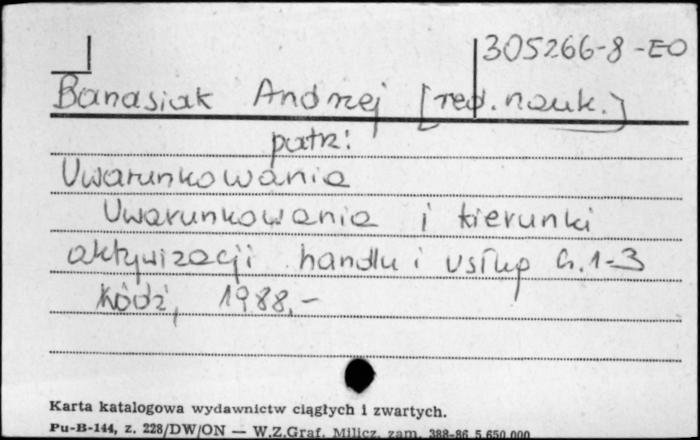 305266-8-EO
Banasiak Andrzej [red. nauk.]
patrz:
Uwarunkowania
Uwarunkowania i kierunki
aktywizacji handlu i usług Cz. 1-3
Łódź, 1988,-
Karta katalogowa wydawnictw ciągłych i zwartych.
Pu-B-144, z. 228/DW/ON — W.Z.Graf. Milicz, zam. 388-86 5.650.000